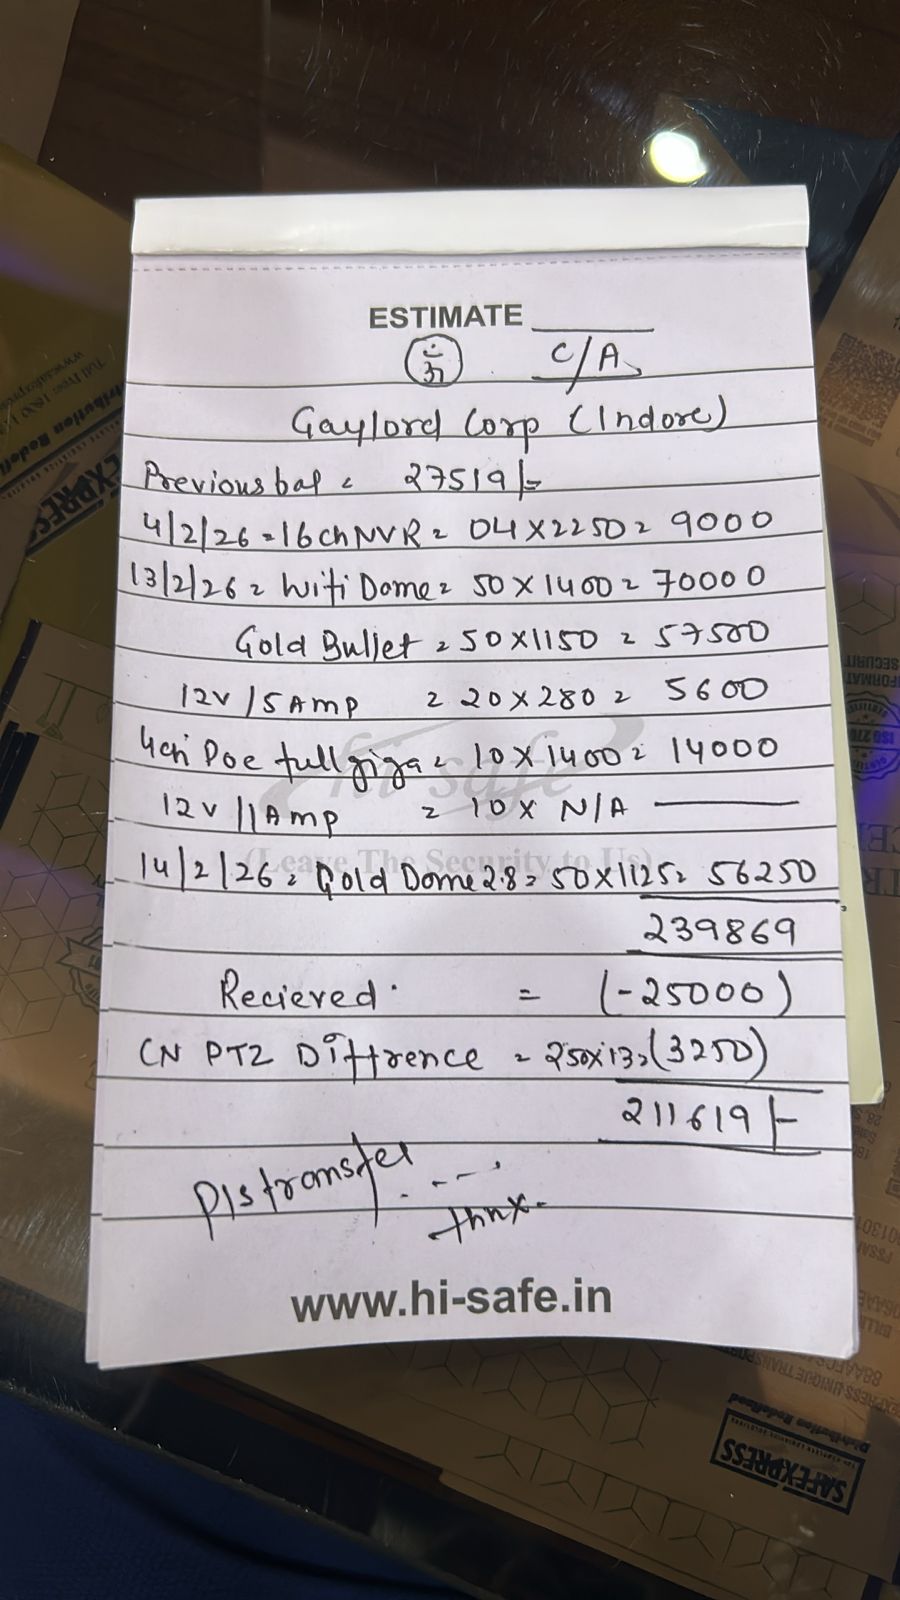 ESTIMATE
C/A
Gaylord Corp (Indore)
Previous bal = 27519/-
4/2/26 = 16ch NVR = 04 X 2250 = 9000
13/2/26 = Wifi Dome = 50 X 1400 = 70000
Gold Bullet = 50 X 1150 = 57500
12V / 5 AMP = 20 X 280 = 5600
4ch Poe full giga = 10 X 1400 = 14000
hi-safe
12V // AMP = 10 X N/A
(Leave The Security to Us)
14/2/26 = Gold Dome 2.8 = 50 X 1125 = 56250
239869
Recieved = (-25000)
CN PTZ Diffrence = 250 X 13 = (3250)
211619/-
Pls transfer
thnx.
www.hi-safe.in
SAFEXPRESS